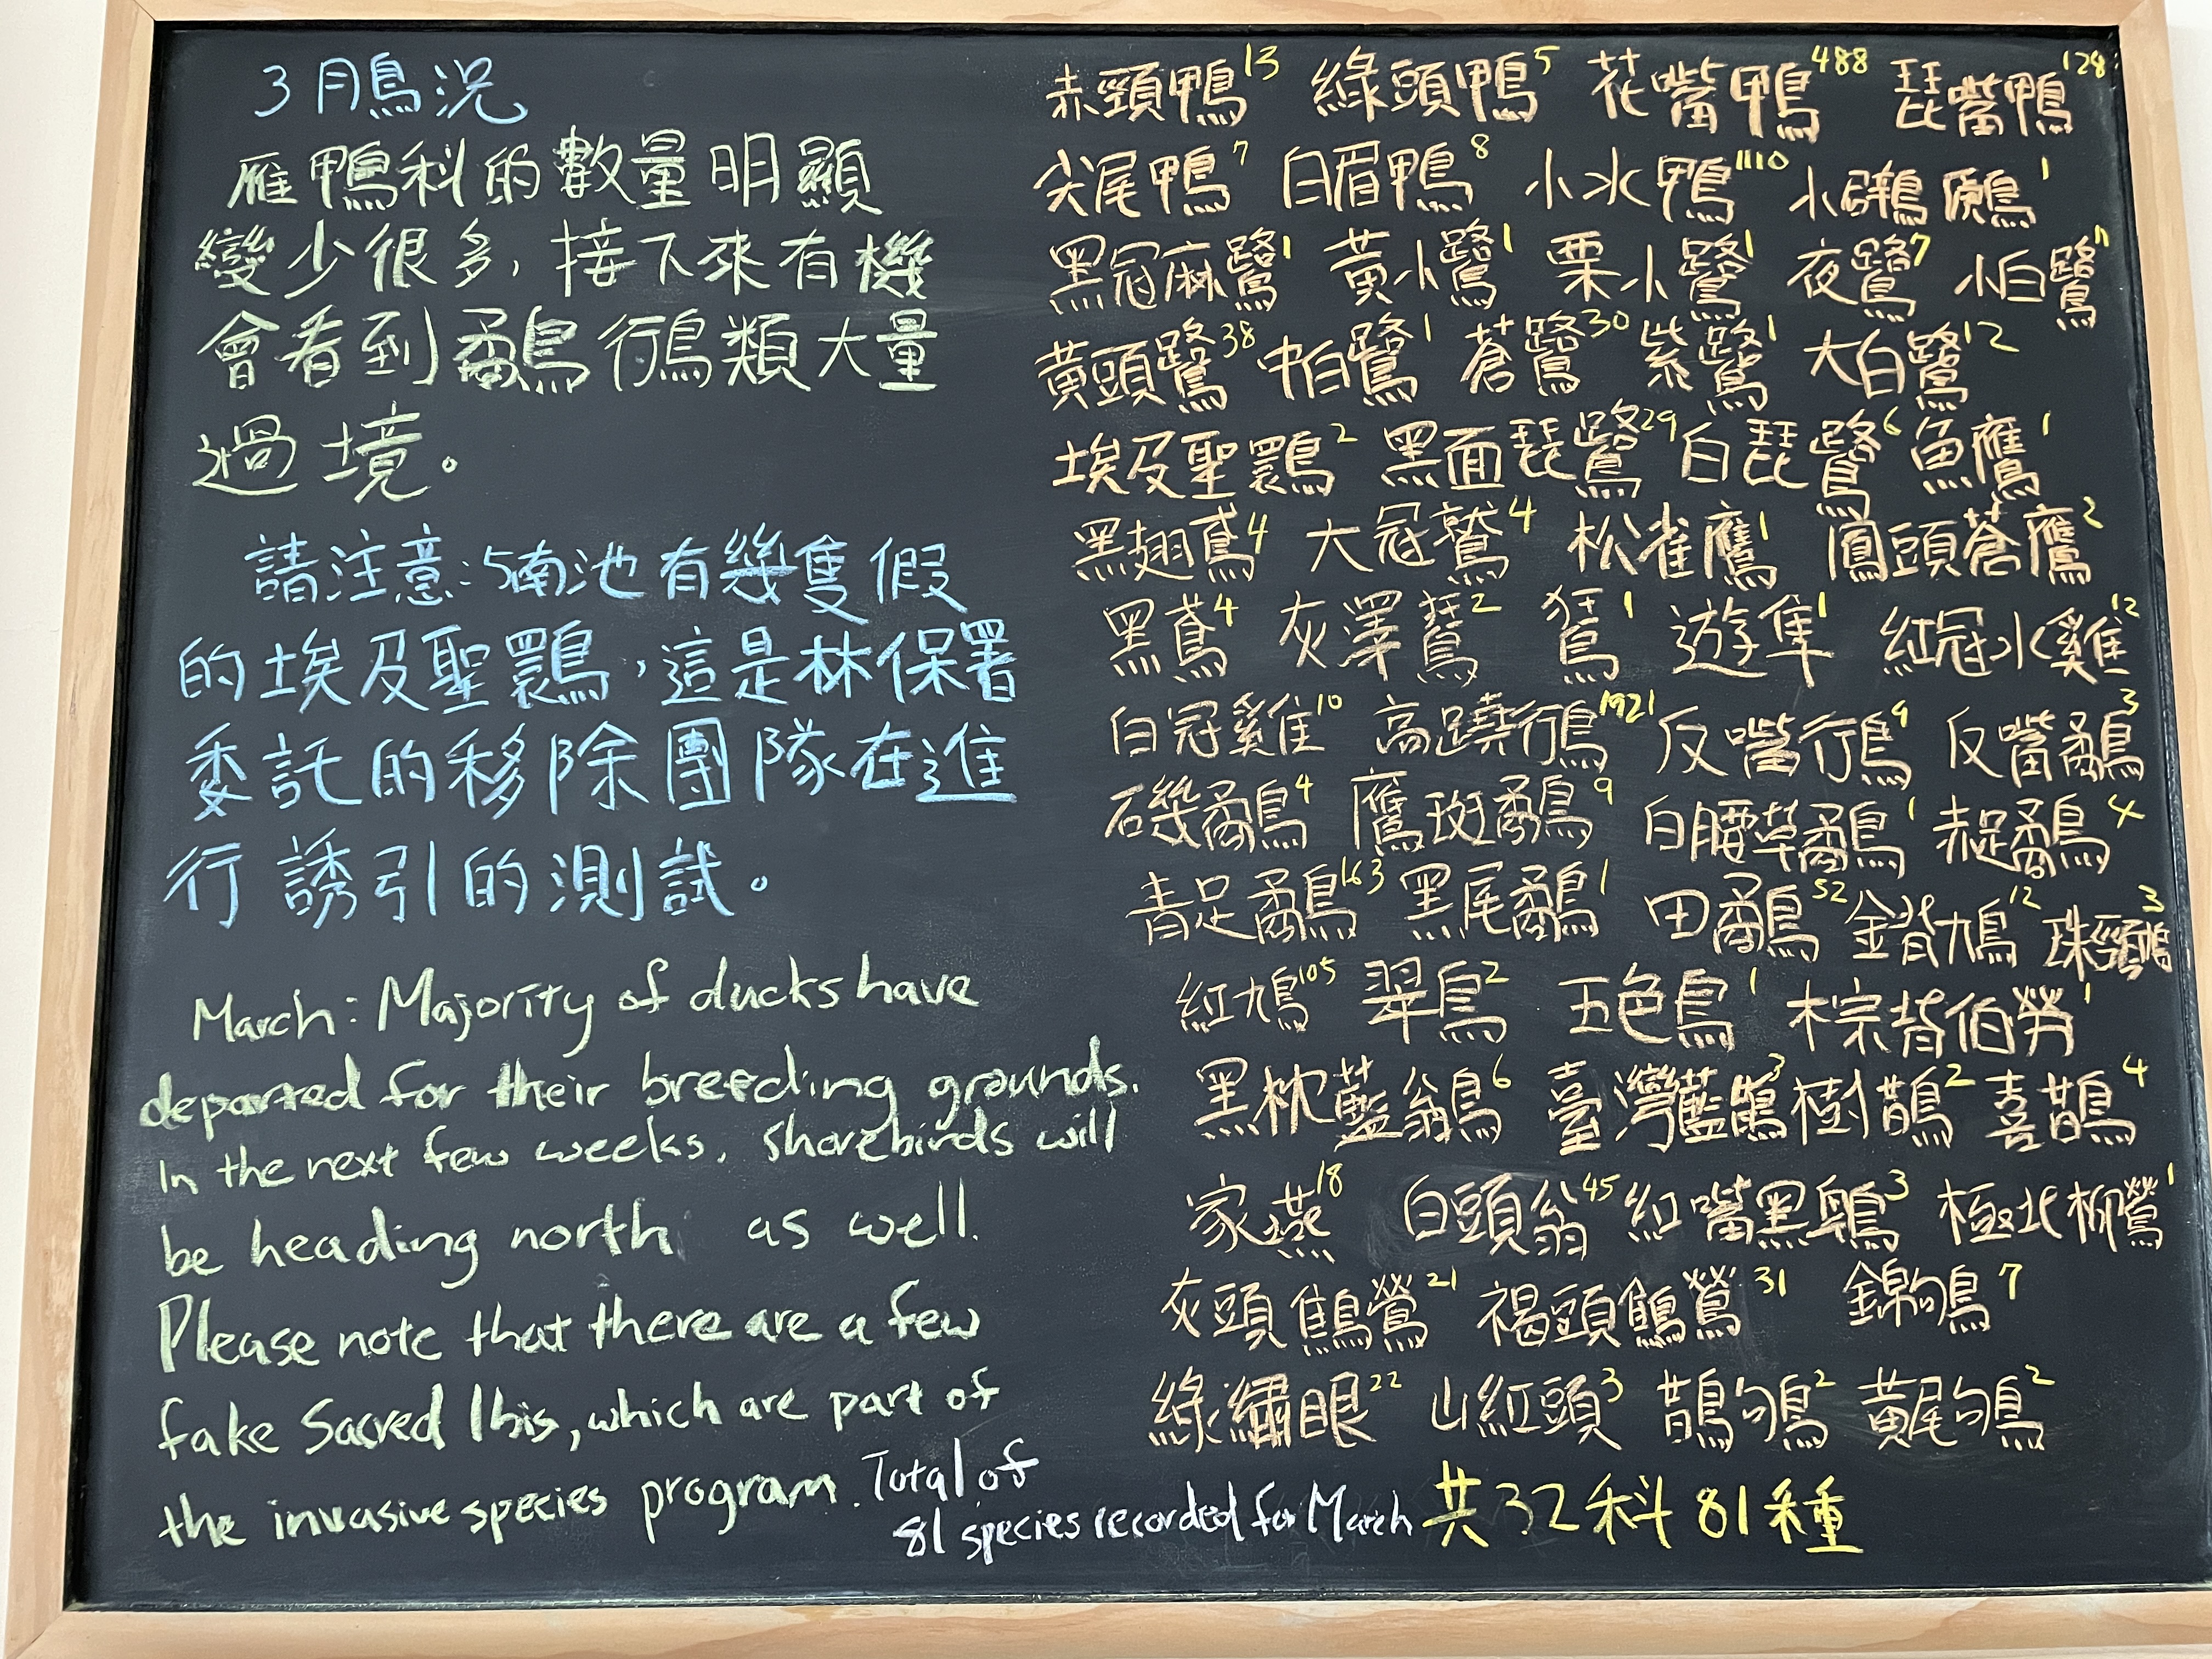 3月鳥況
雁鴨科的數量明顯
變少很多，接下來有機
會看到鷸鴴鳥類大量
過境。
請注意：5南池有幾隻假
的埃及聖䴉，這是林保署
委託的移除團隊在進
行誘引的測試。
March: Majority of ducks have
departed for their breeding grounds.
In the next few weeks, shorebirds will
be heading north as well.
Please note that there are a few
fake Sacred Ibis, which are part of
the invasive species program. Total of
81 species recorded for March
赤頸鴨13 綠頭鴨5 花嘴鴨488 琵嘴鴨128
尖尾鴨7 白眉鴨8 小水鴨1110 小鸊鷉1
黑冠麻鷺1 黃小鷺1 栗小鷺1 夜鷺7 小白鷺11
黃頭鷺38 中白鷺1 蒼鷺30 紫鷺1 大白鷺12
埃及聖䴉2 黑面琵鷺29 白琵鷺6 魚鷹1
黑翅鳶4 大冠鷲4 松雀鷹1 鳳頭蒼鷹2
黑鳶4 灰澤鵟2 鵟1 遊隼1 紅冠水雞12
白冠雞10 高蹺鴴1921 反嘴鴴9 反嘴鷸3
磯鷸4 鷹斑鷸9 白腰草鷸1 赤足鷸4
青足鷸163 黑尾鷸1 田鷸52 金背鳩12 珠頸鳩3
紅鳩105 翠鳥2 五色鳥1 棕背伯勞1
黑枕藍鶲6 臺灣藍鵲3 樹鵲2 喜鵲4
家燕18 白頭翁45 紅嘴黑鵯3 極北柳鶯1
灰頭鷦鶯21 褐頭鷦鶯31 錦鴝7
綠繡眼22 山紅頭3 鵲鴝2 黃尾鴝2
共32科81種